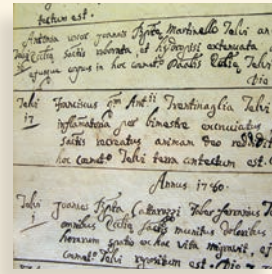 tectum est.
Antonia uxor Joannis Bptae Martinello Telvi an
Ecctiae sactis roborata, et hydropisi extenuata
ejusque corpus in hoc Comet° Paalis Ecctiae Telvi
Telvi Franciscus qm Antii Trentinaglia Telvi
17 inflamatoria per bimestre excruciatus
sactis recreatus animam Deo reddidit
hoc Comet° Telvi terra contectum est.
Annus 1760.
Telvi Joanes Bpta Cattaruzzi Faber ferrarius T
1 omnibus Ecctiae sactis munitus doloribus
horarum spatio ex hac vita migravit, et
Comet° Telvi repositum est.